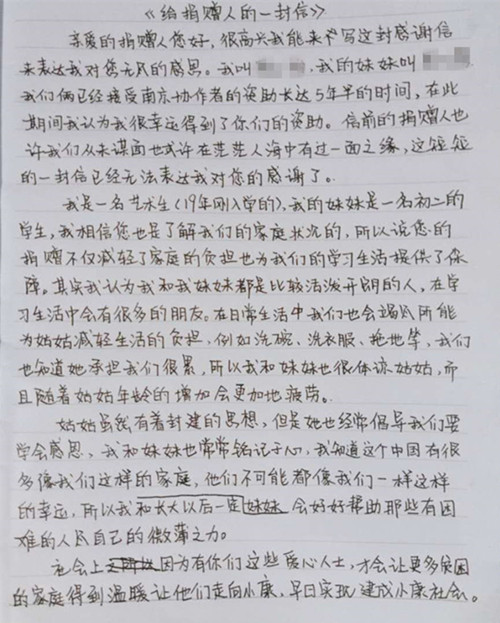 《给捐赠人的一封信》
亲爱的捐赠人您好,很高兴我能来书写这封感谢信
来表达我对您无尽的感恩。我叫 ,我的妹妹叫
我们俩已经接受南京协作者的资助长达5年半的时间,在此
期间我认为我很幸运得到了你们的资助。信前的捐赠人也
许我们从未谋面也或许在茫茫人海中有过一面之缘,这短短
的一封信已经无法表达我对您的感谢了。
我是一名艺术生(19年刚入学的),我的妹妹是一名初二的
学生,我相信您也是了解我们的家庭状况的,所以说您的
捐赠不仅减轻了家庭的负担也为我们的学习生活提供了保
障。其实我认为我和我妹妹都是比较活泼开朗的人,在学
习生活中会有很多的朋友。在日常生活中我们也会竭尽所能
为姑姑减轻生活的负担,例如洗碗、洗衣服、拖地等,我们
也知道她承担我们很累,所以我和妹妹也很体谅姑姑,而
且随着姑姑年龄的增加会更加地疲劳。
姑姑虽然有着封建的思想,但是她也经常倡导我们要
学会感恩,我和妹妹也常常铭记于心,我知道这个中国有很
多像我们这样的家庭,他们不可能都像我们一样这样
的幸运,所以我和长大以后一定妹妹会好好帮助那些有困
难的人尽自己的微薄之力。
社会上因为有你们这些爱心人士,才会让更多贫困
的家庭得到温暖让他们走向小康,早日实现建成小康社会。